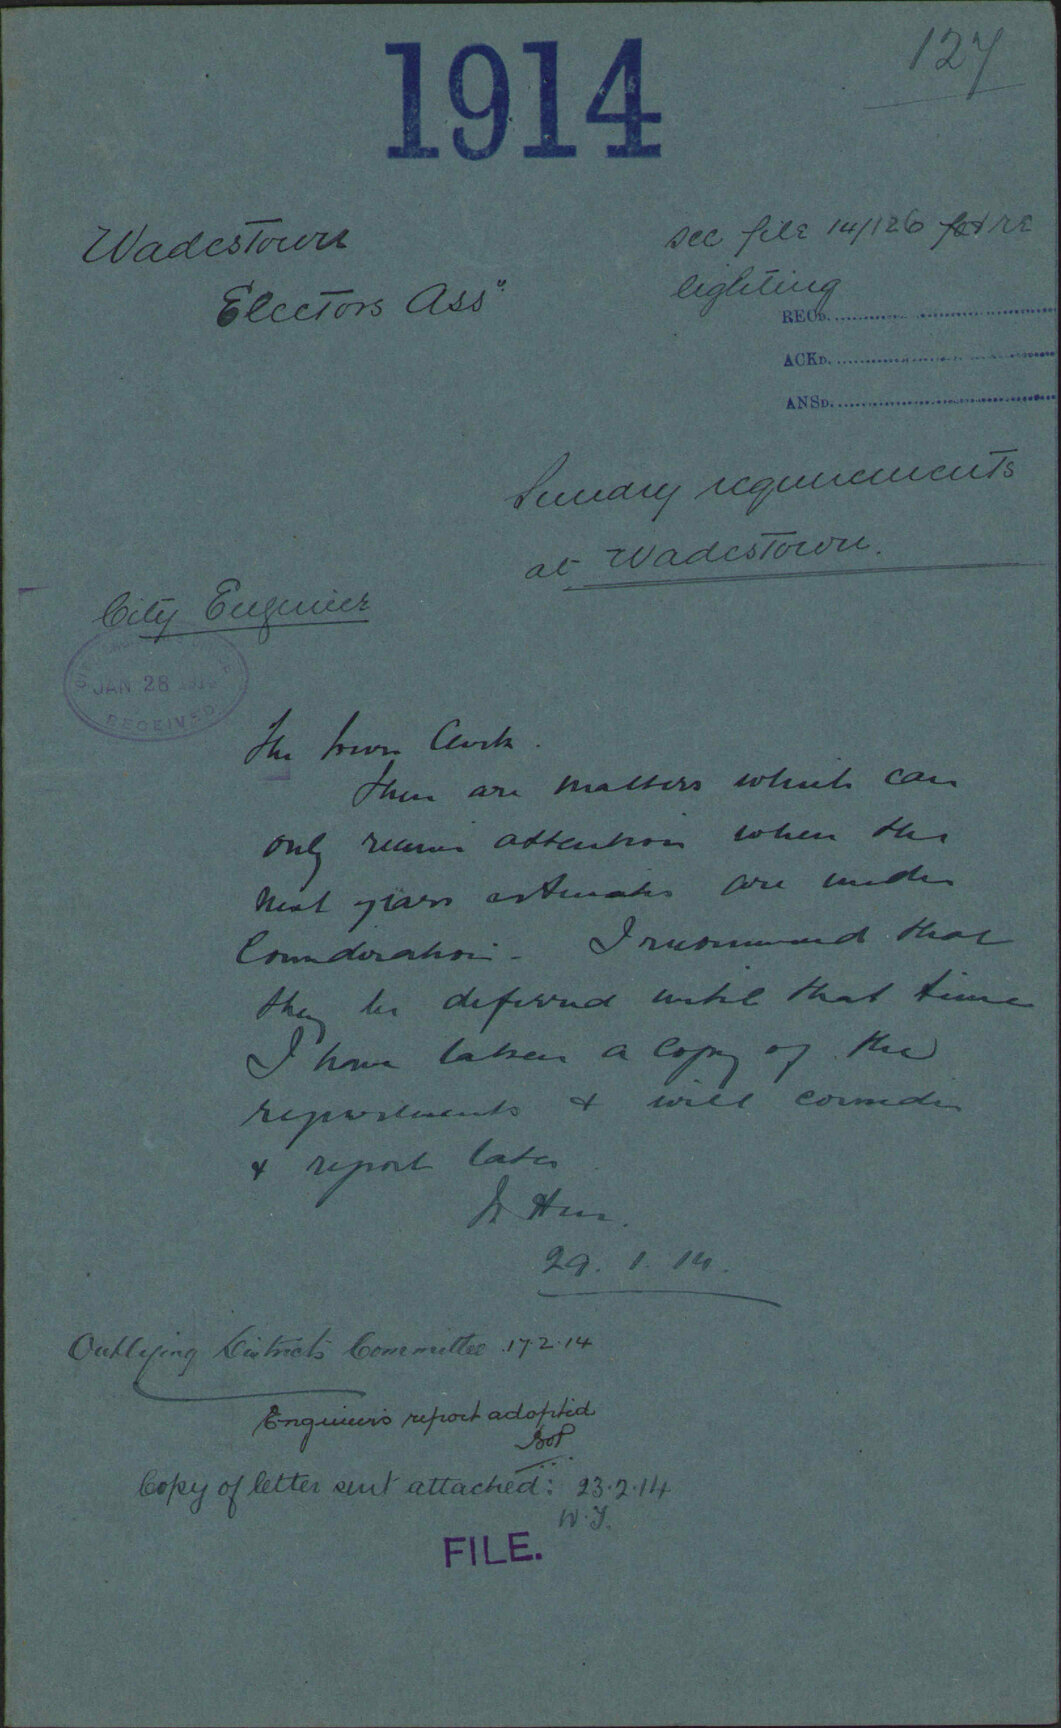 1914
127
Wadestown
Electors Assn
see file 14/126 for re
lighting
RECD.
ACKD.
ANSD.
Sundry requirements
at Wadestown.
City Engineer
JAN 28
RECEIVED
The Town Clerk.
These are matters which can
only receive attention when the
next years estimates are under
Consideration. I recommend that
they be deferred until that time
I have taken a copy of the
requirements & will consider
& report later
29.1.14.
Outlying Districts Committee 17.2.14
Engineer's report adopted
Copy of letter sent attached: 23.2.14
FILE.